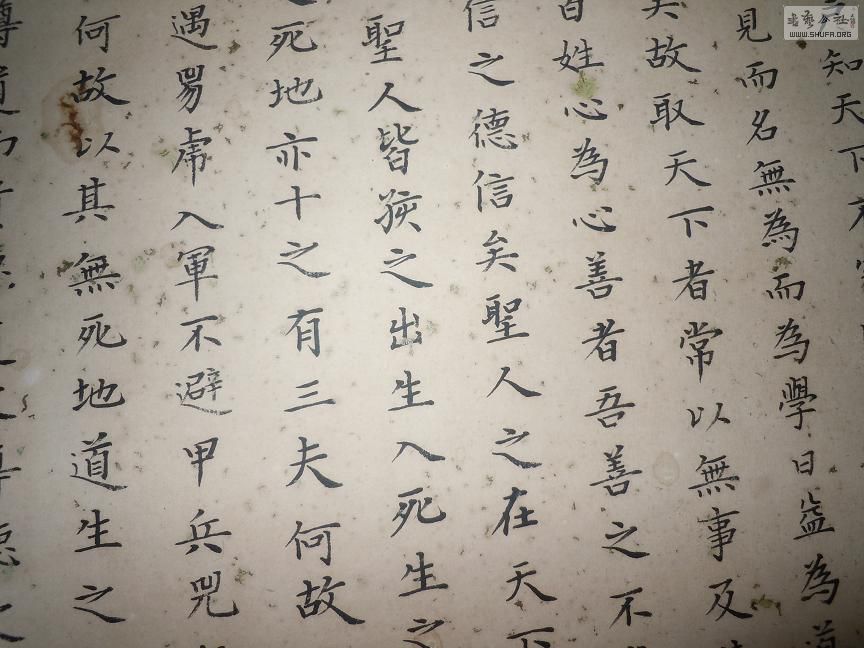 知天下
見而名無為而為學日益為道
矣故取天下者常以無事及
百姓心為心善者吾善之不
信之德信矣聖人之在天下
聖人皆孩之出生入死生之
之死地亦十之有三夫何故
遇兕虎入軍不避甲兵兕
何故以其無死地道生之
尊道
書藝公社
WWW.SHUFA.ORG